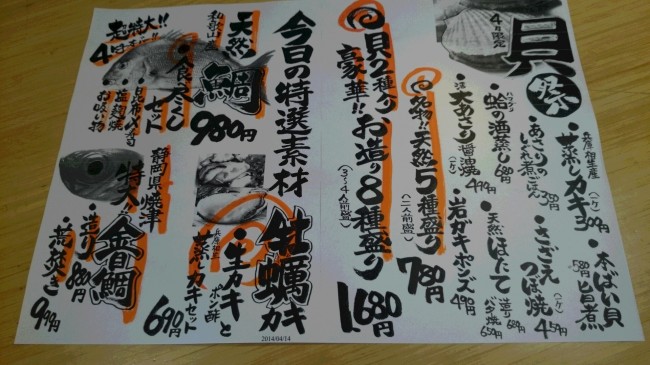 4月限定
貝祭
兵庫相生産
・蒸しカキ(一ケ)300円
・本ばい貝
旨煮 580円
・あさりの
しぐれ煮ごはん 350円
・さざえ
つぼ焼(一ケ)450円
・蛤の酒蒸し 680円
ハマグリ
・天然ほたて
造り 680円
バタ焼 650円
・活大あさり醤油焼(一ケ)499円
・岩ガキポンズ 490円
名物!!天然5種盛り
(一人前盛)
780円
貝2種入り
豪華!!お造り8種盛り
(3~4人前盛)
1,680円
今日の特選素材
牡蠣カキ
・生カキと
ポン酢
兵庫相生
蒸しカキセット
690円
和歌山産
天然鯛
・人食べ尽くし
セット
980円
超特大!!
・昆布〆寿司
・塩麹焼
・お吸い物
静岡県焼津
特大!!金目鯛
・造り 880円
・荒焚き 999円
2014/04/14